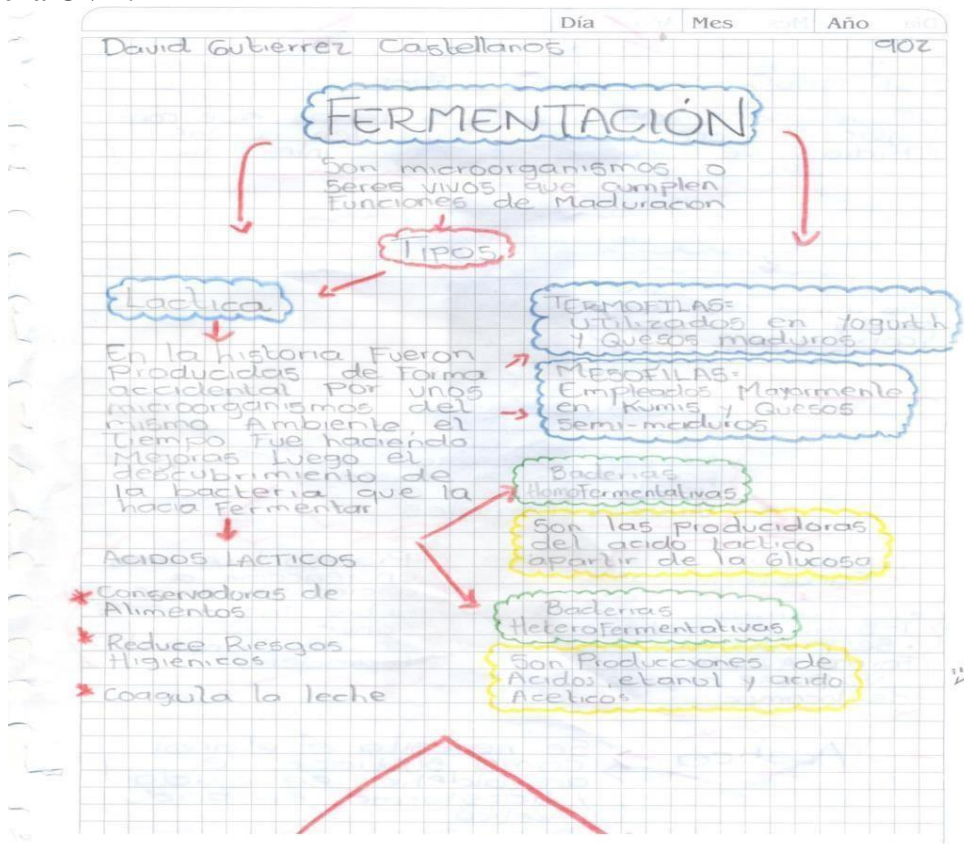 Día Mes Año
David Gutierrez Castellanos 902
FERMENTACIÓN
Son microorganismos o
Seres vivos que cumplen
Funciones de Maduracion
Tipos
Lactica
En la historia Fueron
Producidas de Forma
accidental Por unos
microorganismos del
mismo Ambiente el
tiempo Fue haciendo
Mejoras Luego el
descubrimiento de
la bacteria que la
hacia Fermentar
ACIDOS LACTICOS
* Conservadoras de
Alimentos
* Reduce Riesgos
Higienicos
* Coagula la leche
TERMOFILAS=
Utilizados en Yogurth
y Quesos maduros
MESOFILAS=
Empleados Mayormente
en Kumis y Quesos
Semi-maduros
Bacterias
HomoFermentativas
Son las producidoras
del acido lactico
apartir de la Glucosa
Bacterias
HeteroFermentativas
Son Producciones de
Acidos, etanol y acido
Aceticos